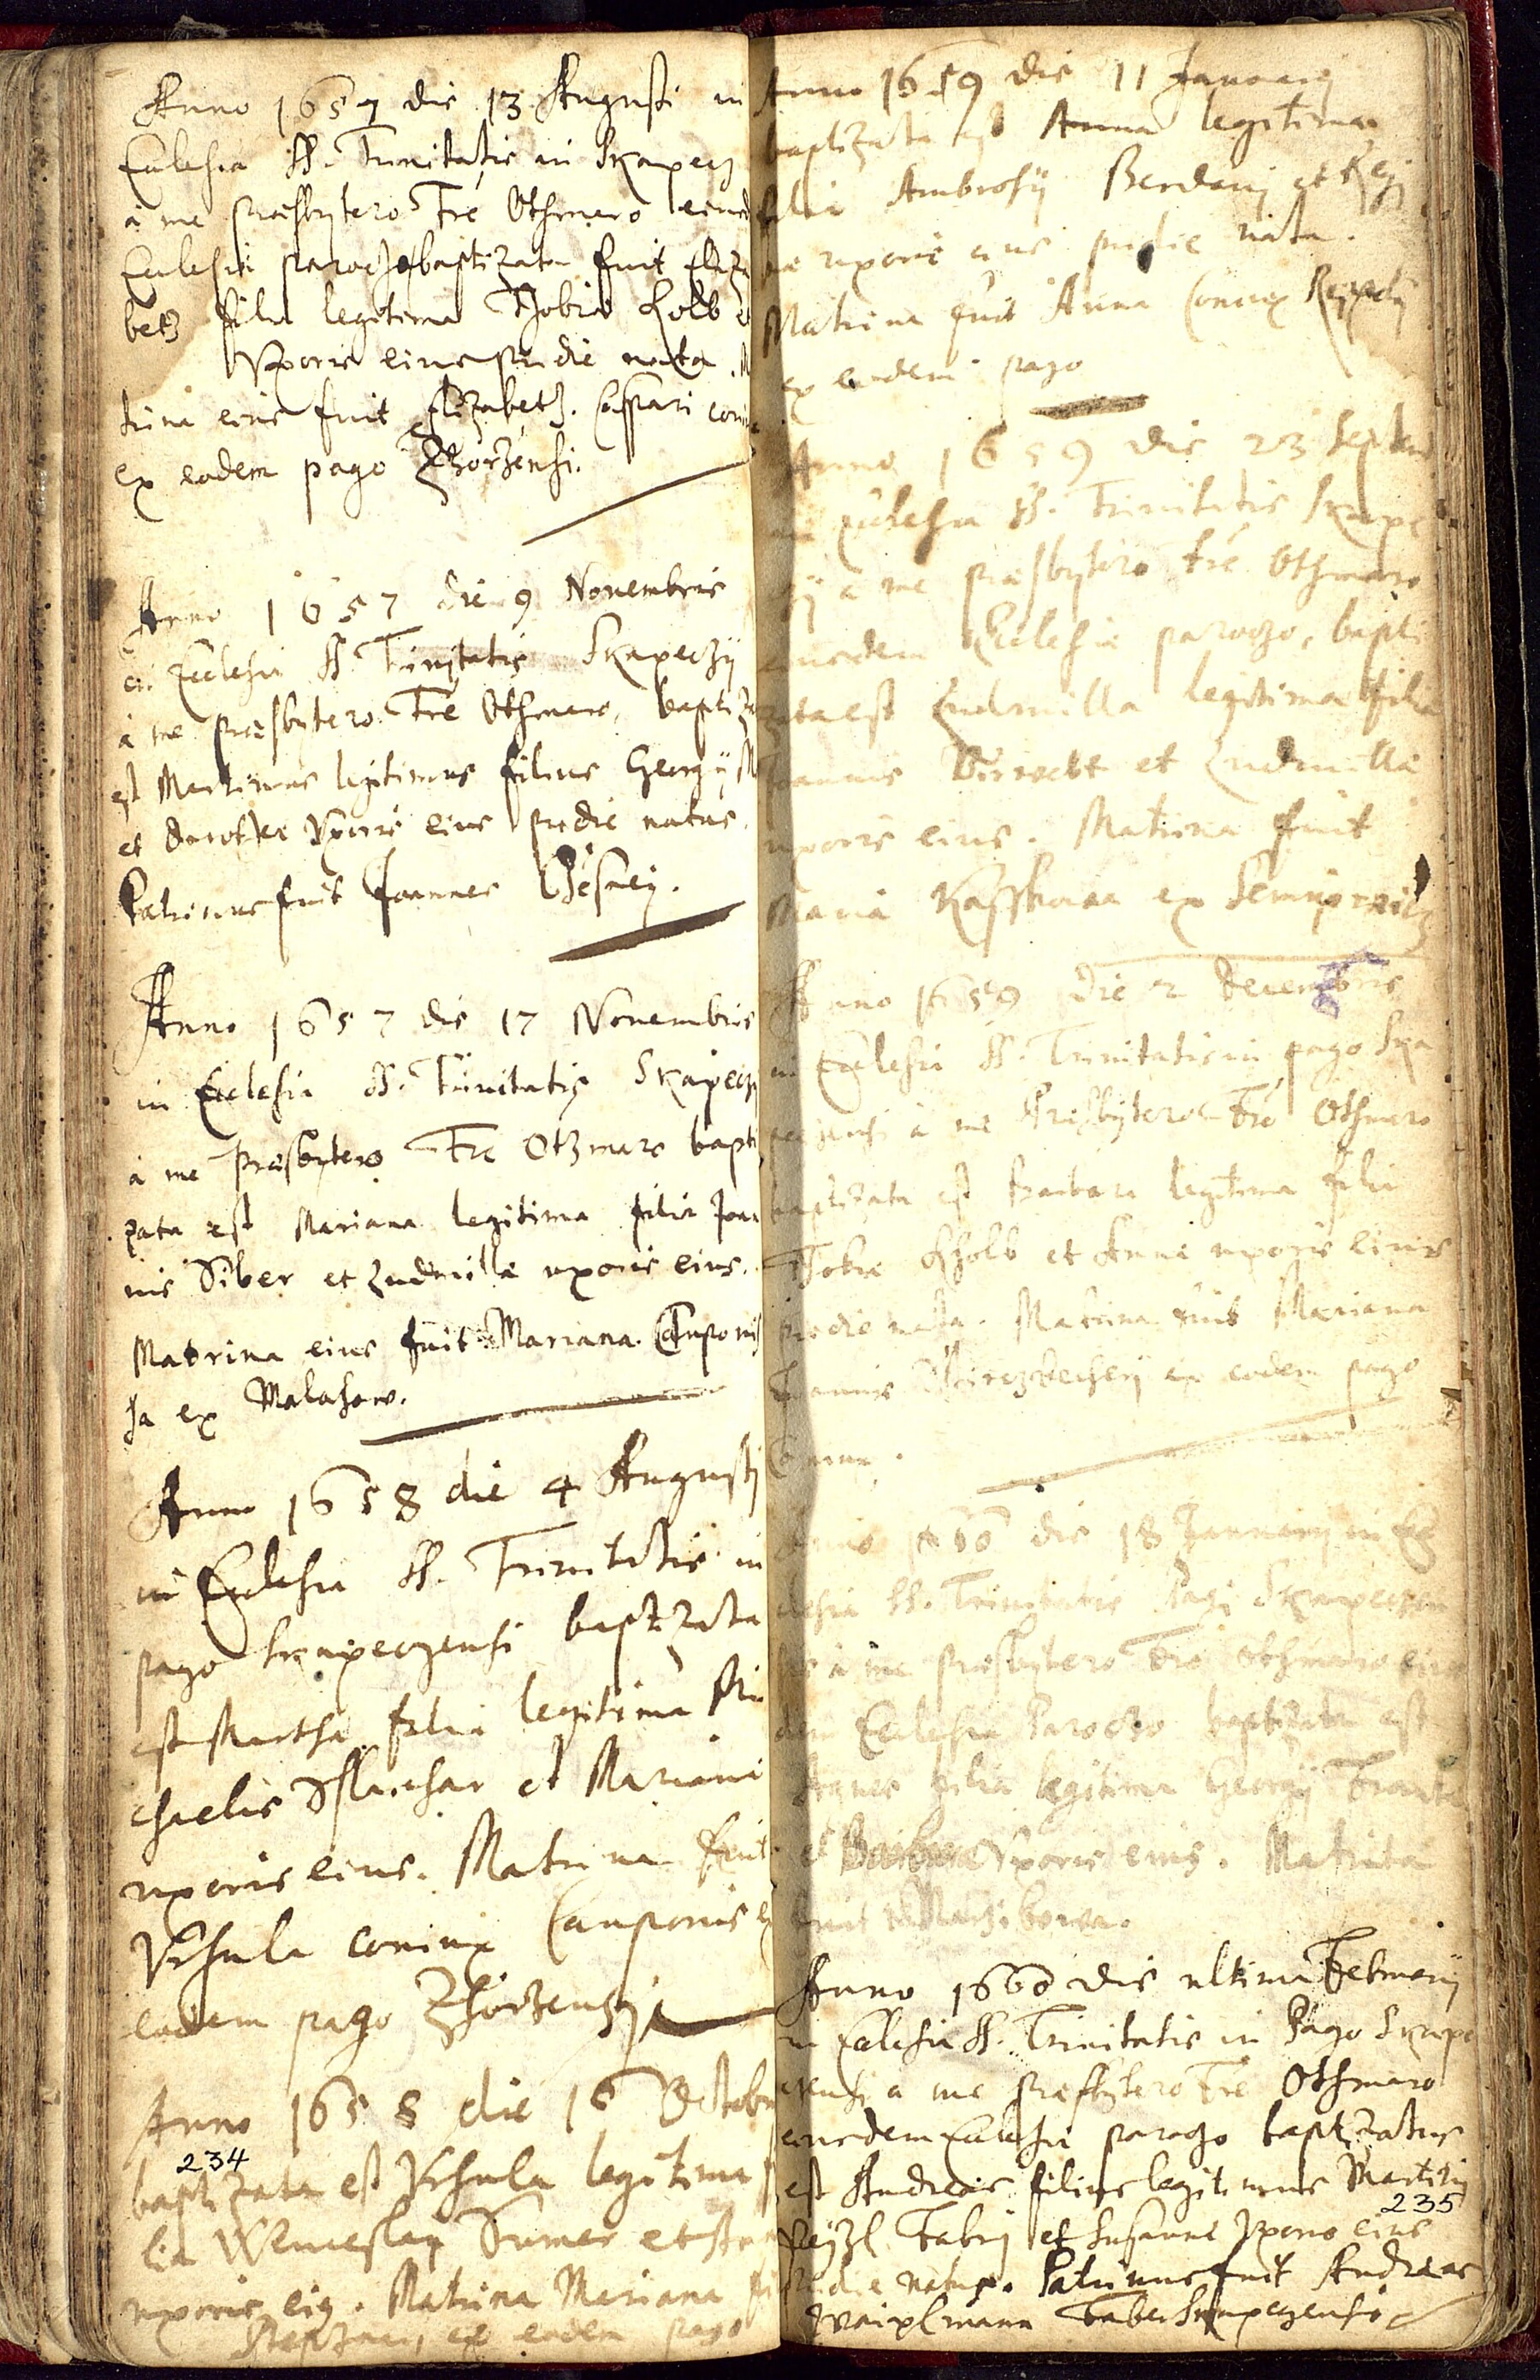 Anno 1657 die 13 Augusti in
Ecclesia SS. Trinitatis in Skapecz
à me Præsbytero Fre Othmaro eiusd
Ecclesiæ parocho baptizata fuit Eliza
beth filia legitima Thobiæ Kolb et
Vxoris eius pridie nata. M
trina eius fuit Elizabeth. Caspari coniu
ex eodem pago Zhorzensi.
Anno 1657 die 9 Nouembris
in Ecclesia SS. Trinitatis Skapeczij
à me Præsbytero Fre Othmaro, baptiza
est Martinus legitimus filius Georgij
et Dorothæ Vxoris eius pridie natus.
Patrinus fuit Joannes
Anno 1657 die 17 Nouembris
in Ecclesia SS. Trinitatis Skapecz
à me Præsbytero Fre Othmaro bapti
zata est Mariana legitima filia Joan
nis Siber et Ludmillæ uxoris eius.
Matrina eius fuit Mariana Cauponis
sa ex Malahow.
Anno 1658 die 4 Augusti
in Ecclesia SS. Trinitatis in
pago Skapeczensi baptizata
est Martha filia legitima Mi
chaelis et Marianæ
uxoris eius. Matrina fuit
Vrsula coniux Cauponis ex
eodem pago Zhorzensi
Anno 1658 die 16 Octobr
234
baptizata est Vrsula legitima fi
lia Wenceslaij Sumer et
uxoris eis. Matrina Mariana
ex eodem pago
Anno 1659 die 11 Januarij
baptizata est Anna legitima
filia Ambrosij Berdarij et Regi
næ uxoris eius pridie nata.
Matrina fuit Anna Coniux
ex eodem pago
Anno 1659 die 23 Septem
in Ecclesia SS. Trinitatis Skape
czij a me præsbytero Fre Othmaro
eiusdem Ecclesiæ parocho, bapti
zata est Ludmilla legitima filia
Joannis et Ludmillæ
uxoris eius. Matrina fuit
Maria ex
Anno 1659 die 2 Decembris
in Ecclesia SS. Trinitatis in pago Ska
peczensi à me Præsbytero Fre Othmaro
baptizata est Barbara legitima filia
Tobiæ Kholb et Annæ uxoris eius
pridie nata. Matrina fuit Mariana
Joannis ex eodem pago
Anno 1660 die 18 Januarij in Ec
clesia SS. Trinitatis Pagi Skapeczen
sis à me præsbytero Fre Othmaro eius
dem Ecclesiæ Parocho baptizata est
Agnes filia legitima Georgij
et Barbaræ Vxoris eius. Matrina
fuit
Anno 1660 die ultima Februarij
in Ecclesia SS. Trinitatis in Pago Skape
czensi a me præsbytero Fre Othmaro
eiusdem Ecclesiæ parocho baptizatus
est Andreas filius legitimus Martini
235
Fabri et Susannæ Vxoris eius
pridie natus. Patrinus fuit Andreas
Waixlmann Faber Skapeczensis